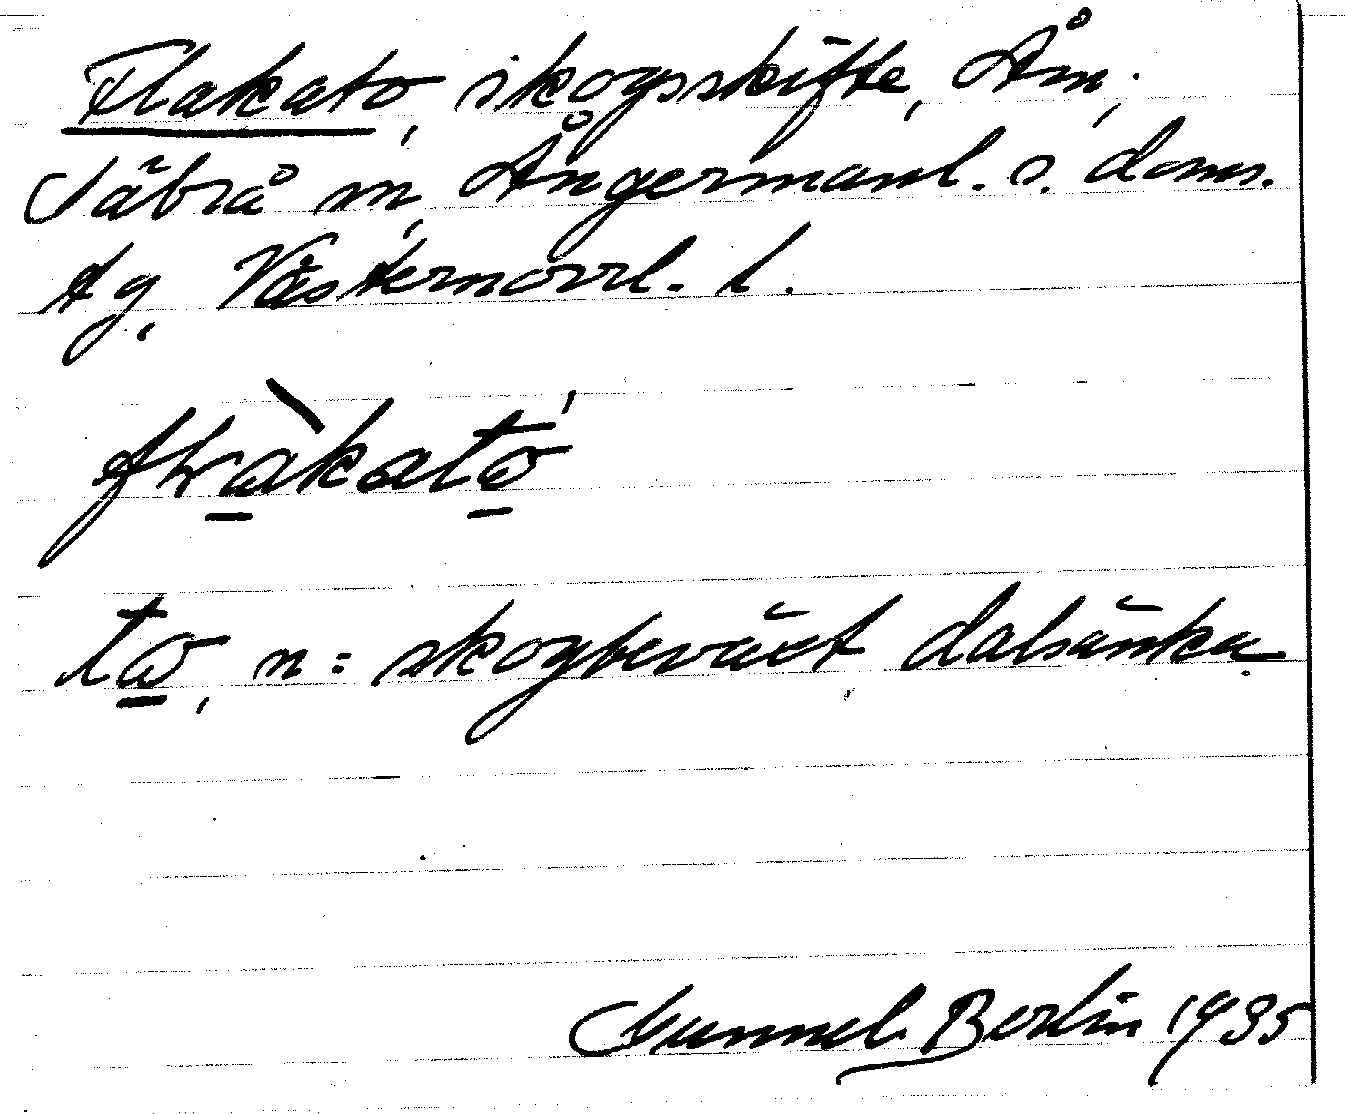 Flakato, skogsskifte, Åm,
Säbrå sn, Ångermanl. s. doms.
tg, Västernorrl. l.
flàkató
to, n = skogbeväxt dalsänka
Gunnel Berlin 1935